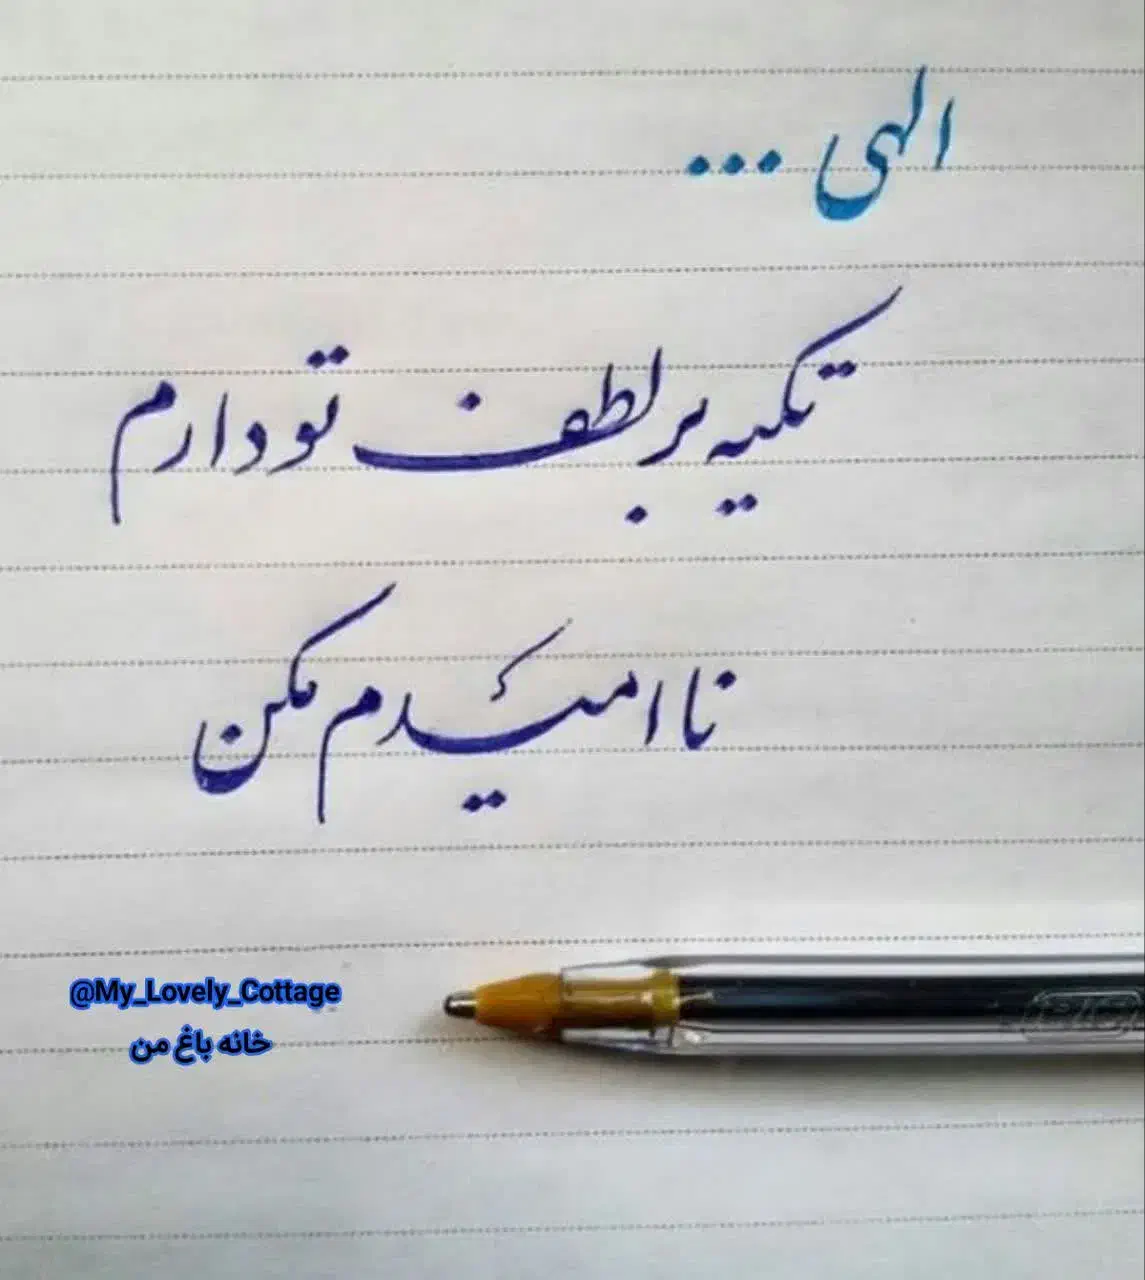 الهی ...
تکیه بر لطف تو دارم
نا امیدم مکن
@My_Lovely_Cottage
خانه باغ من